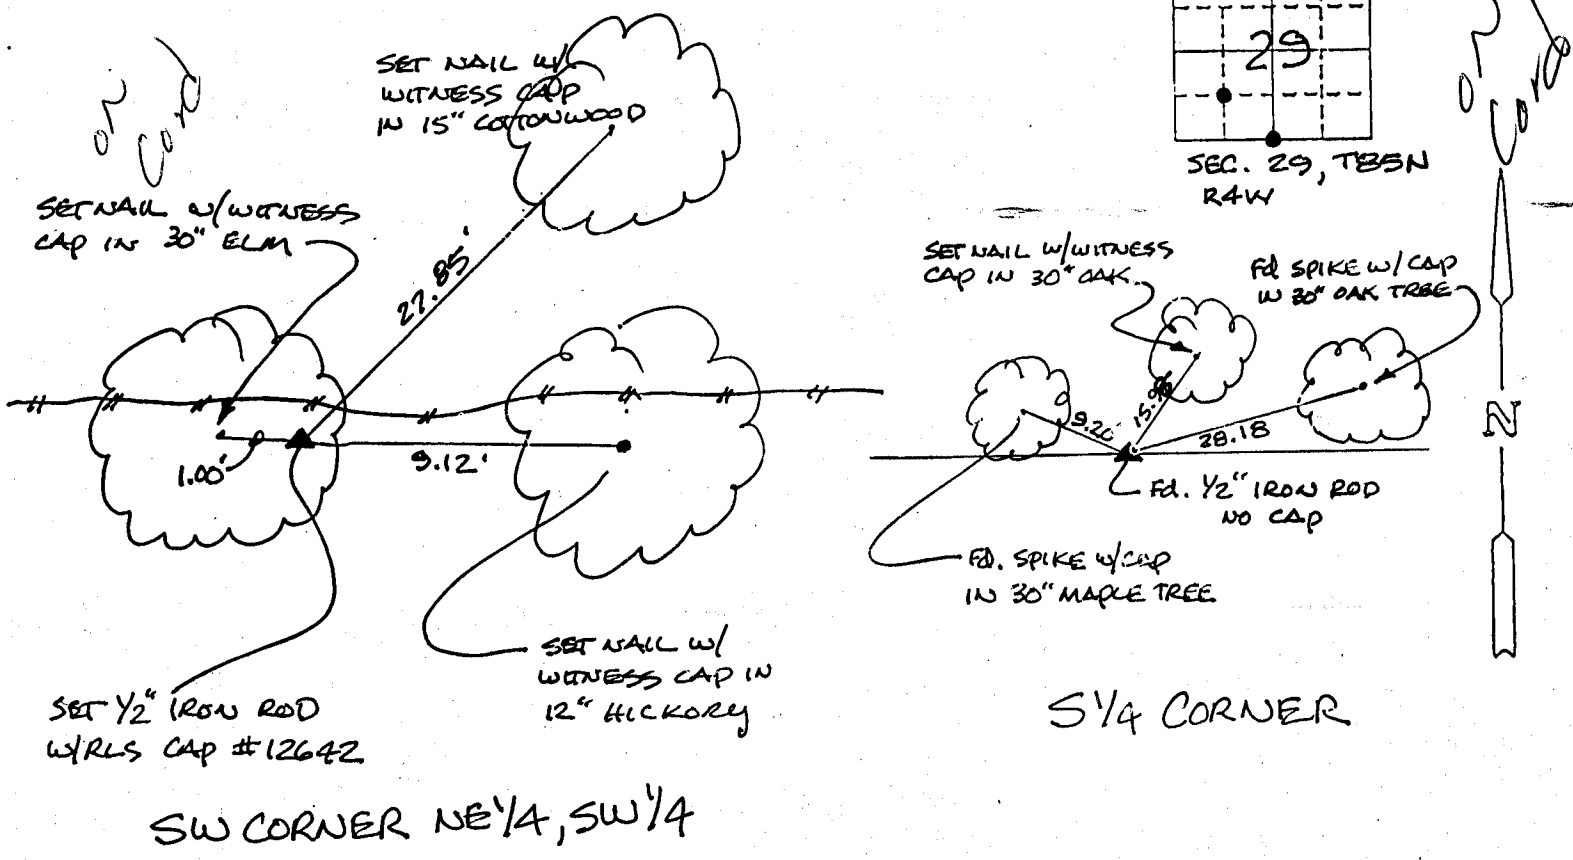 or
Cord
SET NAIL W/
WITNESS CAP
IN 15" COTTONWOOD
SET NAIL W/WITNESS
CAP IN 30" ELM
27.85'
1.00'
9.12'
SET NAIL W/
WITNESS CAP IN
12" HICKORY
SET 1/2" IRON ROD
W/RLS CAP #12642
SW CORNER NE 1/4, SW 1/4
29
SEC. 29, T85N
R4W
or
Cord
SET NAIL W/WITNESS
CAP IN 30" OAK
Fd SPIKE W/CAP
IN 30" OAK TREE
9.20'
28.18
Fd. 1/2" IRON ROD
NO CAP
Fd. SPIKE W/CAP
IN 30" MAPLE TREE
N
S 1/4 CORNER